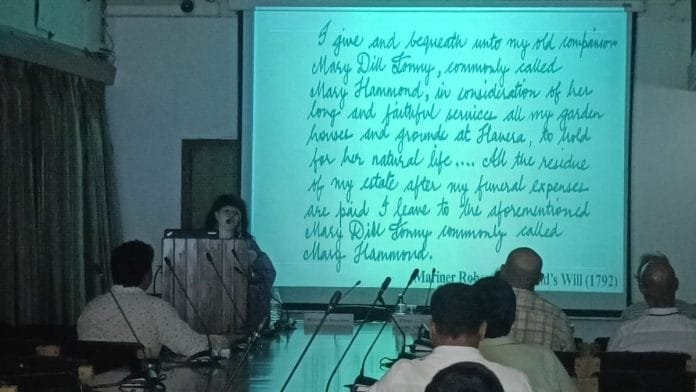 I give and bequeath unto my old companion
Mary Dill Tonny, commonly called
Mary Hammond, in consideration of her
long and faithful services all my garden
houses and grounds at to hold
for her natural life.... All the residue
of my estate after my funeral expenses
are paid I leave to the aforementioned
Mary Dill Tonny commonly called
Mary Hammond.
Mariner Will (1792)